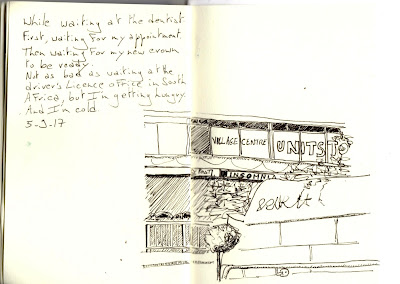 While waiting at the dentist.
First, waiting for my appointment
Then waiting for my new crown
to be ready.
Not as bad as waiting at the
driver's Licence office in South
Africa, but I'm getting hungry.
And I'm cold
5-9-17
VILLAGE CENTRE UNITS TO
INSOMNIA